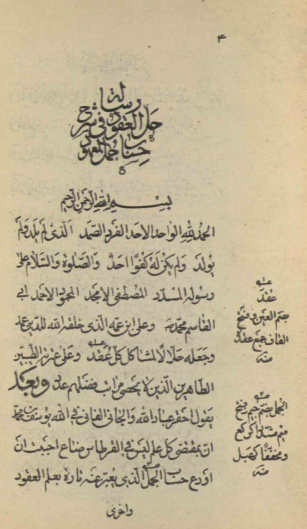 ۴
رسالة
حل العقود في شرح
حساب الجمل العقود
بسم الله الرحمن الرحيم
الحمد لله الواحد الاحد الفرد الصمد الذي لم يلد ولم
يولد ولم يكن له كفوا احد والصلوة والسلام على
رسوله المسدد المصطفى الامجد المحمود الاحمد ابي
القاسم محمد وعلى ابن عمه الذي خلفه الله للدين
وجعله حلالا لمشاكل كل عقد وعلى
الطاهرين الذين لا يحصى فضلهم عد وبعد
يقول احقر عباد الله والجاني الفاني في الله يوسف بن محمد
كل علم ليس في القرطاس ضاع احببت ان
اودع حساب الجمل الذي يعبر عنه تارة بعلم العقود
واخرى
عقد
بضم العين وفتح
القاف جمع عقدة
منه
الجمل بضم جيم وفتح
ميم كركع
ومخففا
منه